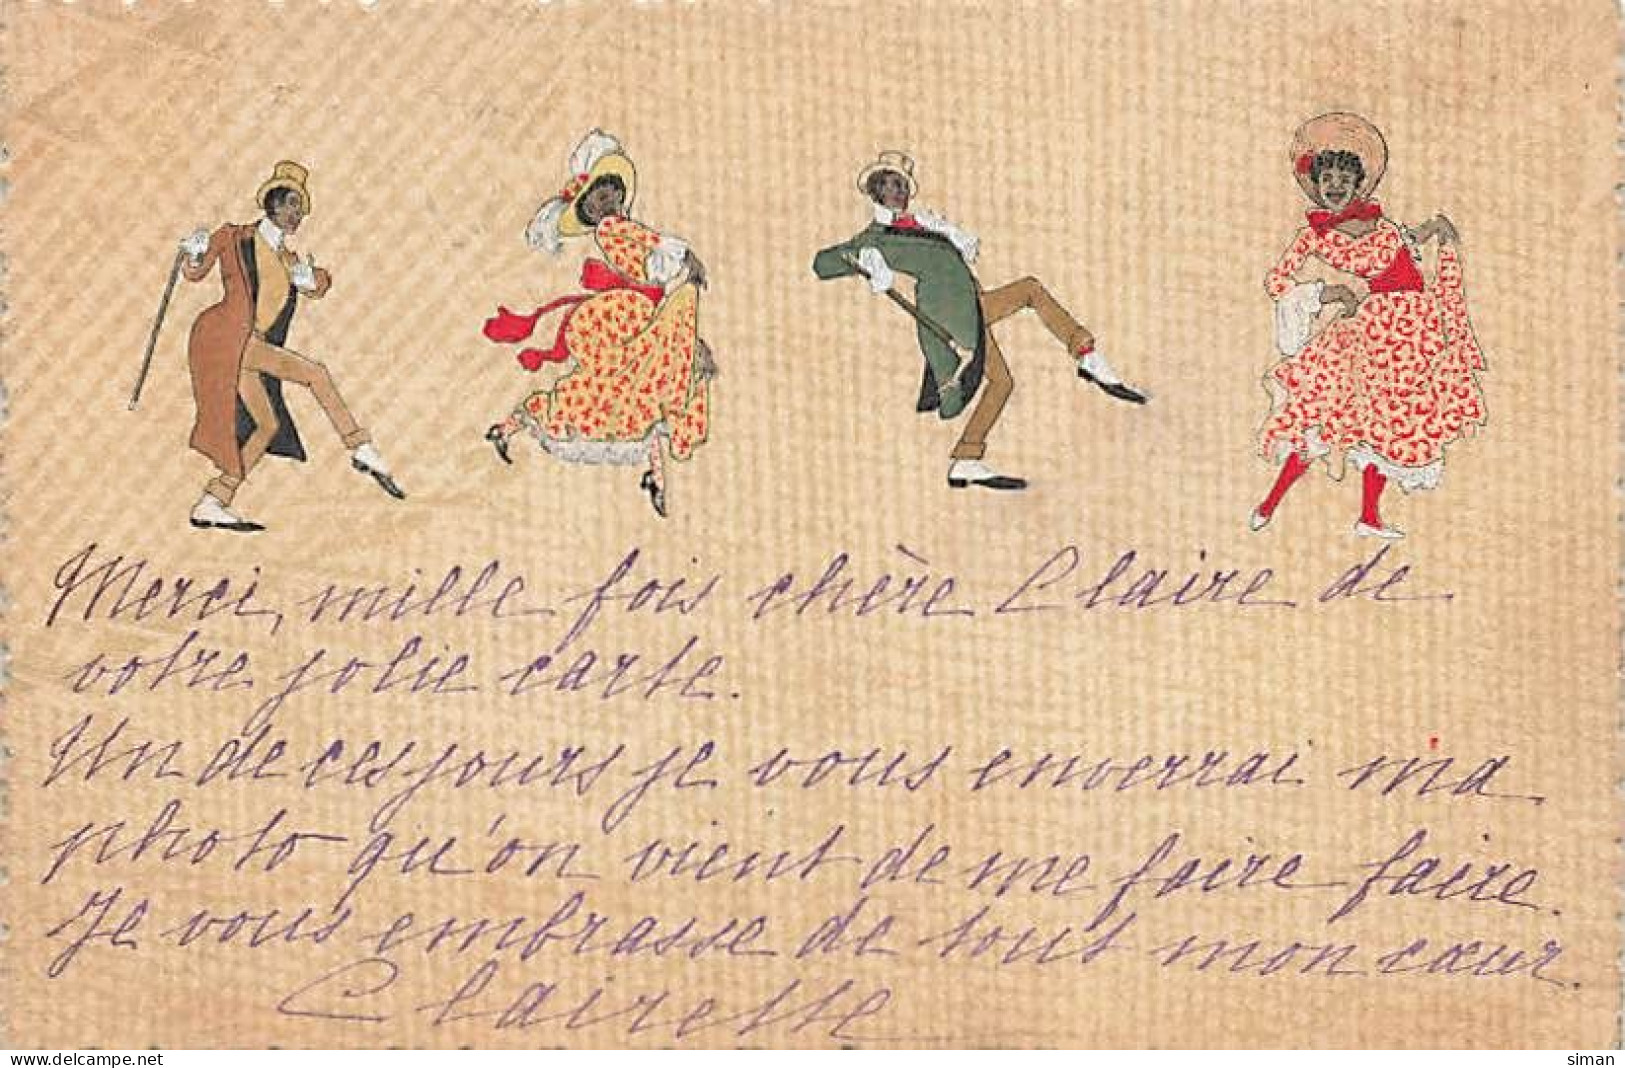 Merci, mille fois chère Claire de
votre jolie carte.
Un de ces jours je vous enverrai ma
photo qu'on vient de me faire faire.
Je vous embrasse de tout mon cœur.
Clairette
https://www.delcampe.net
siman